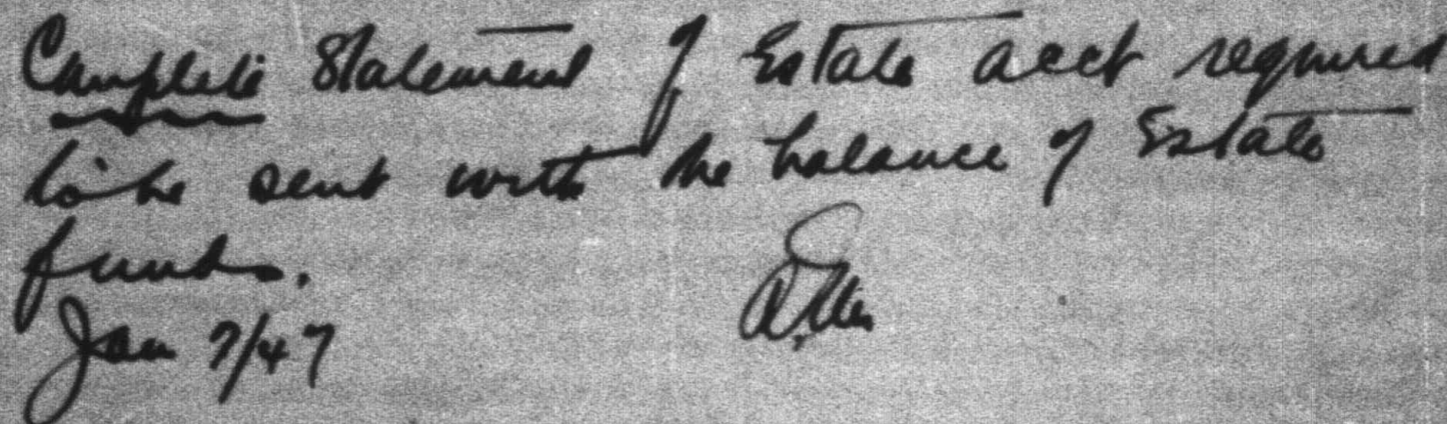 Complete Statement of Estate acct required
to be sent with the balance of Estate
funds.
Jan 7/47